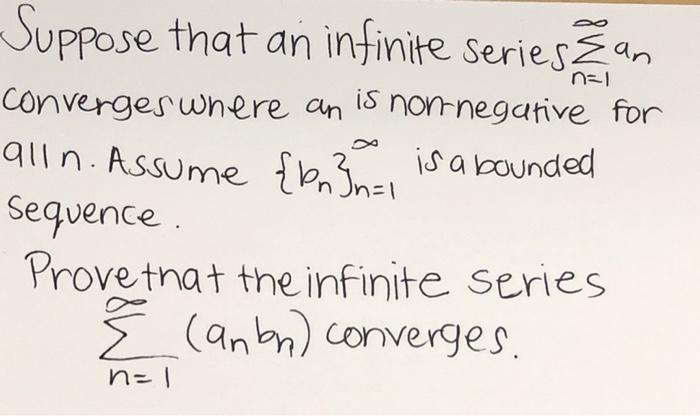 Suppose that an infinite series ∞∑n=1 an
converges where an is non-negative for
all n. Assume {bn}∞n=1 is a bounded
sequence.
Prove that the infinite series
∞∑n=1 (an bn) converges.